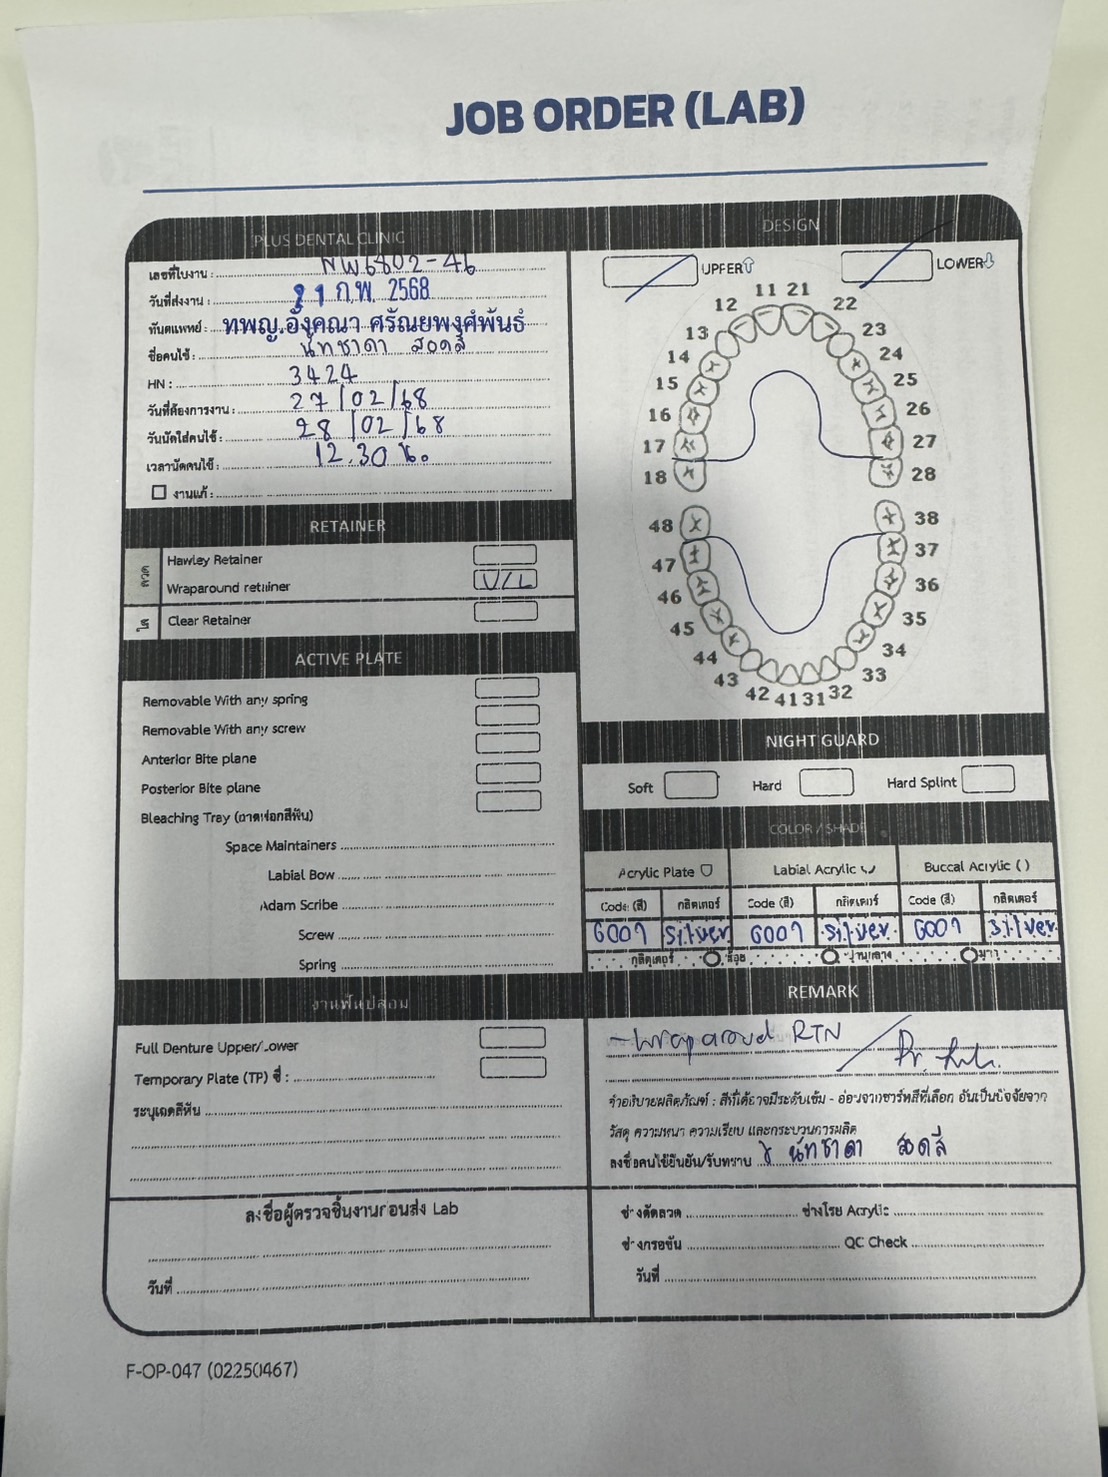 JOB ORDER (LAB)
PLUS DENTAL CLINIC
เลขที่ใบงาน : NW6802-46
วันที่ส่งงาน : 21 ก.พ. 2568
ทันตแพทย์ : ทพญ.อังคณา ศรัณยพงศ์พันธ์
ชื่อคนไข้ : นัทชาดา สอดสี
HN : 3424
วันที่ต้องการงาน : 27/02/68
วันนัดใส่คนไข้ : 28/02/68
เวลานัดคนไข้ : 12.30 น.
งานแก้ :
RETAINER
ลวด
Hawley Retainer
Wraparound retainer U/L
ใส
Clear Retainer
ACTIVE PLATE
Removable With any spring
Removable With any screw
Anterior Bite plane
Posterior Bite plane
Bleaching Tray (ถาดฟอกสีฟัน)
Space Maintainers
Labial Bow
Adam Scribe
Screw
Spring
งานฟันปลอม
Full Denture Upper/Lower
Temporary Plate (TP) ซี่ :
ระบุเฉดสีฟัน
ลงชื่อผู้ตรวจชิ้นงานก่อนส่ง Lab
วันที่
DESIGN
UPPER LOWER
11 21
12 22
13 23
14 24
15 25
16 26
17 27
18 28
48 38
47 37
46 36
45 35
44 34
43 33
42 41 31 32
NIGHT GUARD
Soft Hard Hard Splint
COLOR / SHADE
Acrylic Plate Labial Acrylic Buccal Acrylic ( )
Code (สี) กลิตเตอร์ Code (สี) กลิตเตอร์ Code (สี) กลิตเตอร์
G007 Silver G007 Silver G007 Silver
กลิตเตอร์ น้อย ปานกลาง มาก
REMARK
- Wraparoud RTN
คำอธิบายผลิตภัณฑ์ : สีที่ได้อาจมีระดับเข้ม - อ่อนจากชาร์ทสีที่เลือก อันเป็นปัจจัยจาก
วัสดุ ความหนา ความเรียบ และกระบวนการผลิต
ลงชื่อคนไข้ยืนยัน/รับทราบ นัทชาดา สอดสี
ช่างดัดลวด ช่างโรย Acrylic
ช่างกรอขัน QC Check
วันที่
F-OP-047 (02250467)